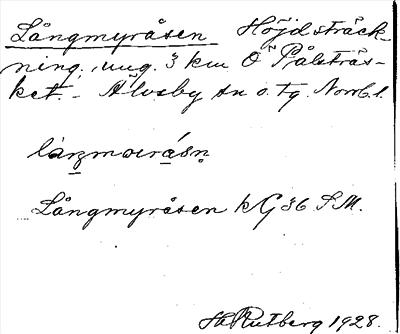 Långmyråsen Höjdsträck-
ning, ung. 3 km Ö Pålsträs-
ket. - Älvsby sn o. tg. Norrb. l.
Långmyråsen kG 36 S.M.
Rutberg 1928.